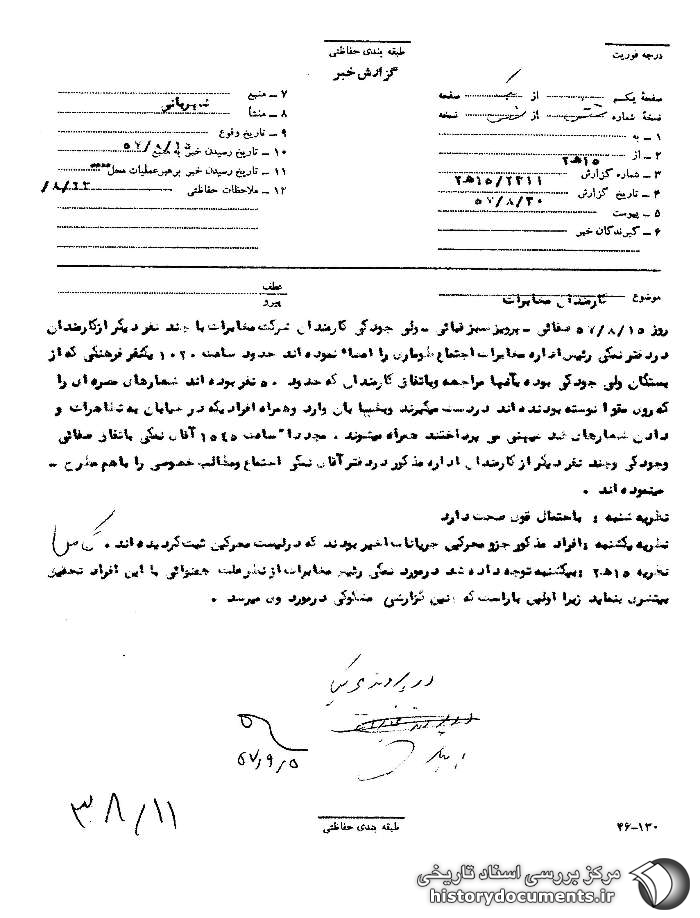 طبقه بندی حفاظتی
گزارش خبر
درجه فوریت
صفحهٔ یکم از صفحه
نسخهٔ شماره از نسخه
۱ ـ به
۲ ـ از ۱۵هـ۲
۳ ـ شماره گزارش ۲۲۱۱/۱۵هـ۲
۴ ـ تاریخ گزارش ۵۷/۸/۲۰
۵ ـ پیوست
۶ ـ گیرندگان خبر
۷ ـ منبع
۸ ـ منشأ شهربانی
۹ ـ تاریخ وقوع
۱۰ ـ تاریخ رسیدن خبر به منبع ۵۷/۸/۱۵
۱۱ ـ تاریخ رسیدن خبر برهبرعملیات محل
۱۲ ـ ملاحظات حفاظتی
موضوع کارمندان مخابرات
عطف
پیرو
روز ۵۷/۸/۱۵ صفائی ـ پرویز سبز قبائی ـ ولی جودکی کارمندان شرکت مخابرات با چند نفر دیگر از کارمندان
در دفتر نمکی رئیس اداره مخابرات اجتماع طوماری را امضاء نموده اند حدود ساعت ۱۰۲۰ یکنفر فرهنگی که از
بستگان ولی جودکی بوده بآنها مراجعه وباتفاق کارمندان که حدود ۵۰ نفر بوده اند شعارهای مضره ای را
که روی مقوا نوشته بودند در دست میگیرند وبخیابان وارد وهمراه افرادیکه در خیابان به تظاهرات و
دادن شعارهای ضد میهنی می پرداختند همراه میشوند . مجددا" ساعت ۱۵۴۵ آقای نمکی باتفاق صفائی
وجودکی وچند نفر دیگر از کارمندان اداره مذکور در دفتر آقای نمکی اجتماع ومطالب خصوصی را باهم مطرح ـ
مینموده اند .
نظریه شنبه : باحتمال قوی صحت دارد
نظریه یکشنبه : افراد مذکور جزو محرکین جریانات اخیر بودند که در لیست محرکین ثبت گردیده اند .
نظریه ۱۵هـ۲ : بیکشنبه توجه داده شد در مورد نمکی رئیس مخابرات از نظر علت همنوائی با این افراد تحقیق
بیشتری بنماید زیرا اولین بار است که چنین گزارشی مشکوکی در مورد وی میرسد .
در پرونده
۵۷/۹/۵
۳۰۸/۱۱
طبقه بندی حفاظتی
۴۶-۱۳۰
مرکز بررسی اسناد تاریخی
historydocuments.ir